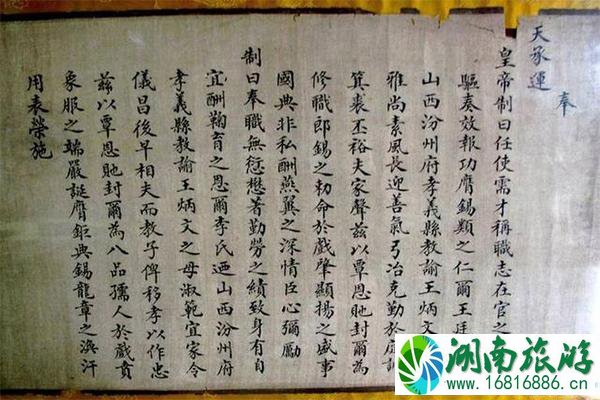 奉
天承運
皇帝制曰任使需才稱職志在官之
驅奏效報功膺錫類之仁爾王
山西汾州府孝義縣教諭王炳文
雅尚素風長迎善氣弓冶克勤於庭訓
箕裘丕裕夫家聲茲以覃恩貤封爾為
修職郎錫之勅命於戲肇顯揚之盛事
國典非私酬燕翼之深情臣心彌勵
制曰奉職無愆懋著勤勞之績致身有自
宜酬鞠育之恩爾李氏迺山西汾州府
孝義縣教諭王炳文之母淑範宜家令
儀昌後早相夫而教子俾移孝以作忠
茲以覃恩貤封爾為八品孺人於戲賁
象服之端嚴誕膺鉅典錫龍章之渙汗
用表榮施
湖南旅游
www.16816886.cn